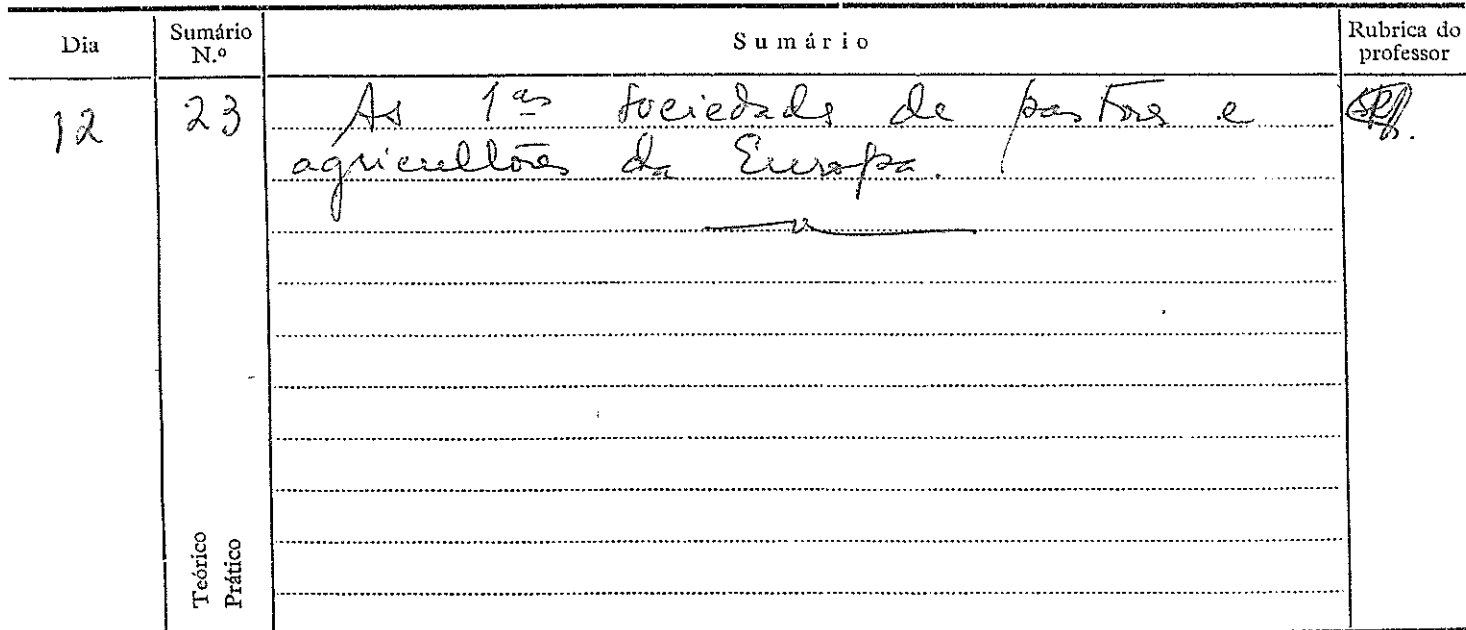 Dia Sumário N.º Sumário Rubrica do professor
12 23 As 1as sociedades de pastores e
agricultores da Europa.
Teórico
Prático